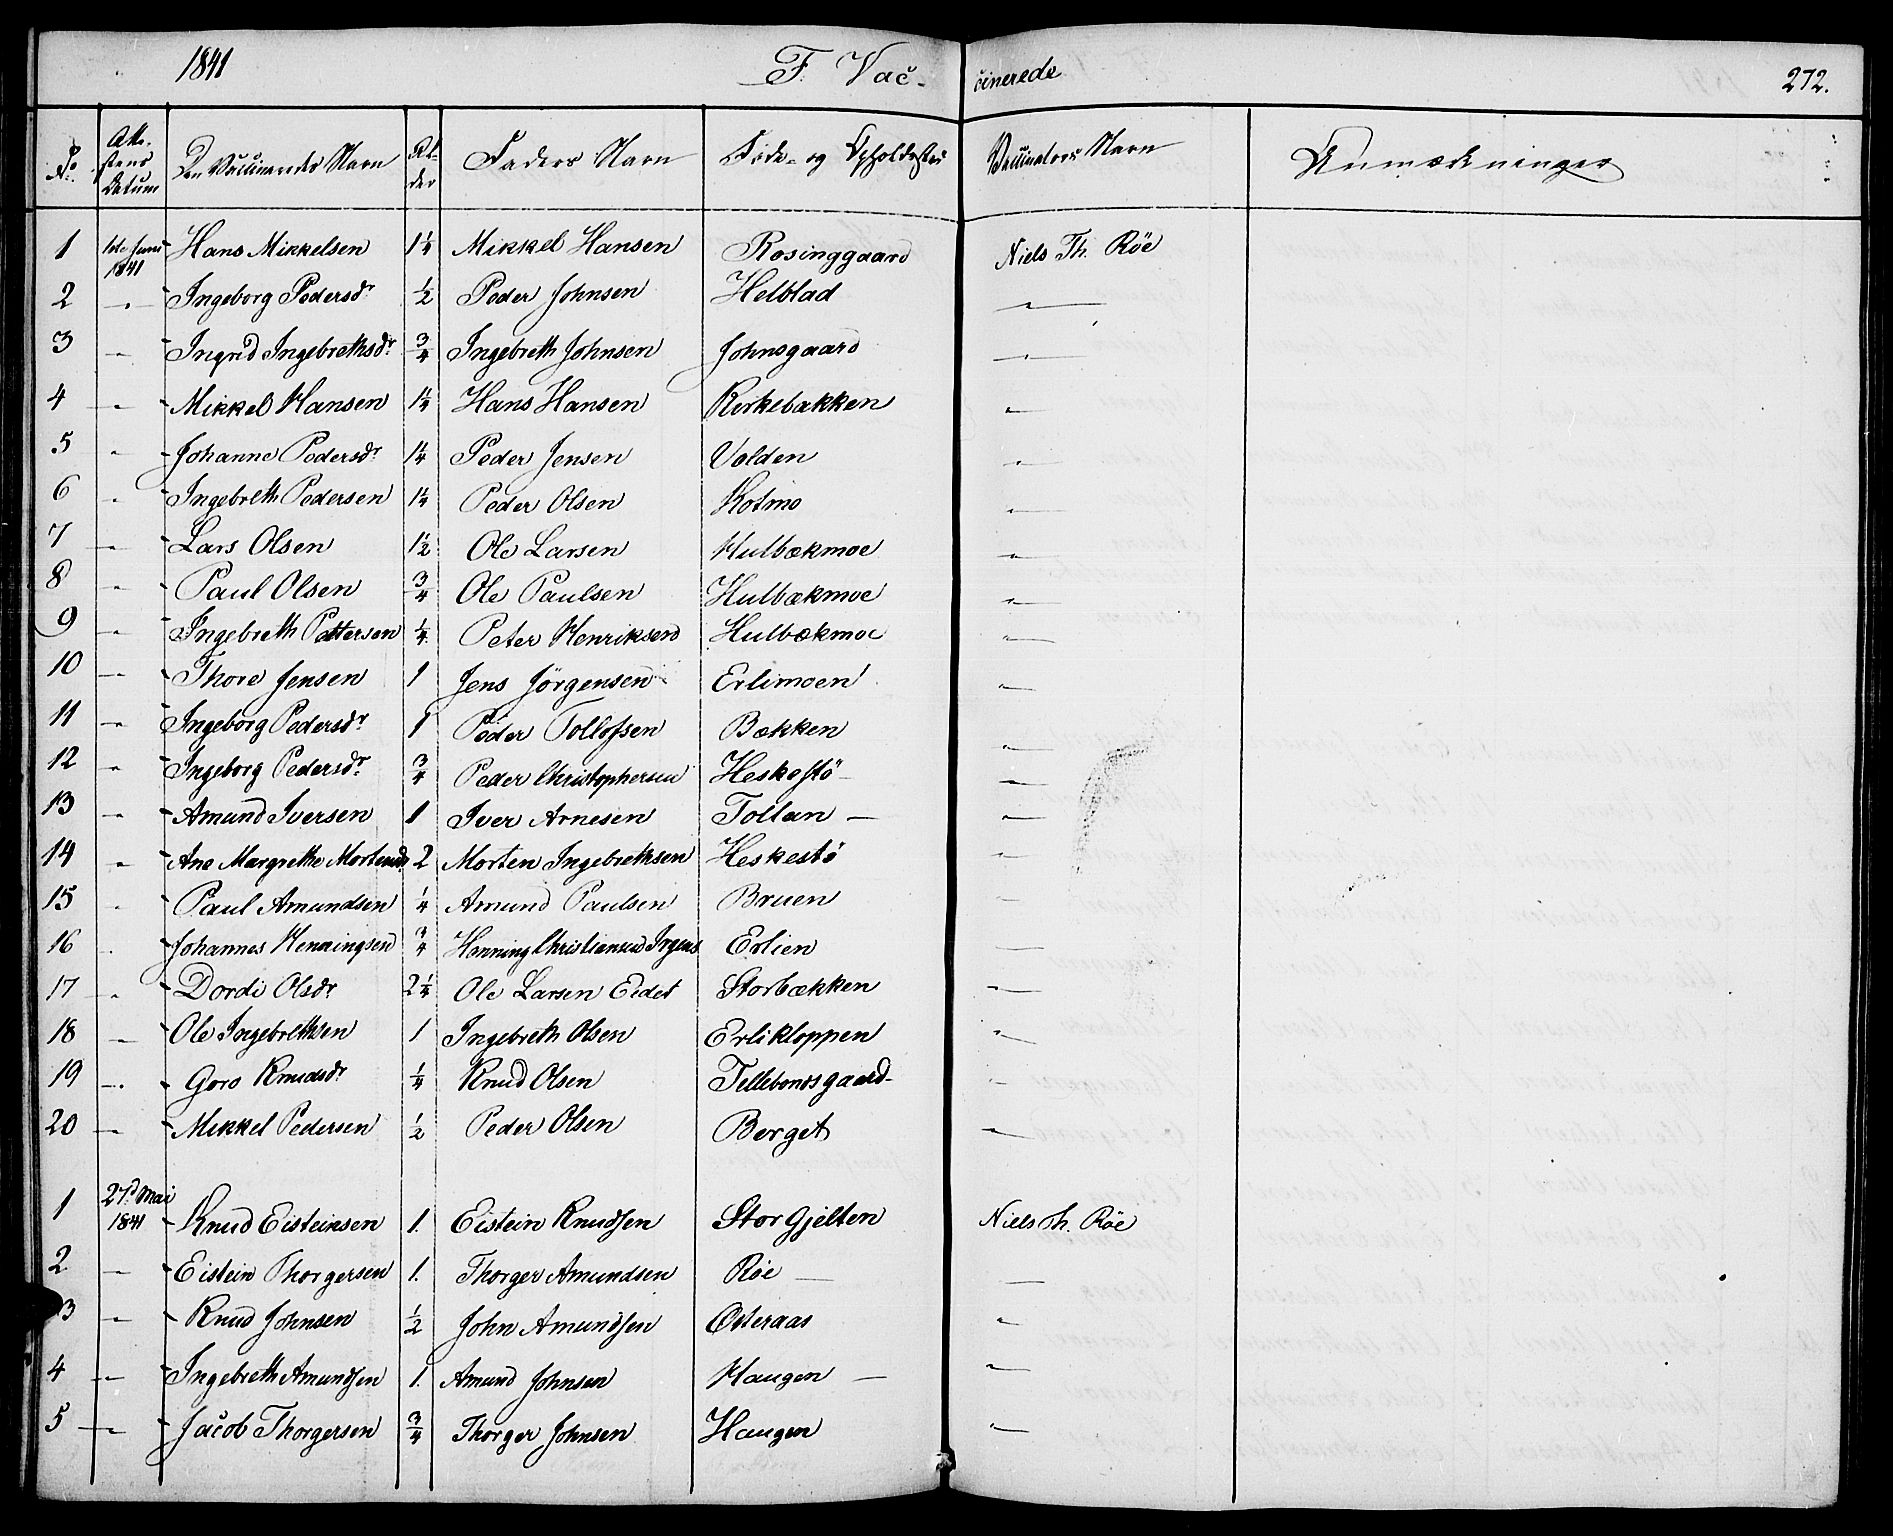 1841 F. Vac- cinerede 272.
No. Atte-stens Datum Den Vaccineredes Navn Al-der Faders Navn Føde- og Opholdssted Vaccinateurs Navn Anmærkninger
1 1ste Juni 1841 Hans Mikkelsen 1 1/4 Mikkel Hansen Rosinggaard Niels Th. Röe
2 " Ingeborg Pedersdr 1/2 Peder Johnsen Helblad "
3 " Ingrid Ingebrethsdr 3/4 Ingebreth Johnsen Johnsgaard "
4 " Mikkel Hansen 1 1/4 Hans Hansen Kirkebakken "
5 " Johanne Pedersdr 1 1/4 Peder Jensen Volden "
6 " Ingebreth Pedersen 1 1/4 Peder Olsen Kotmo "
7 " Lars Olsen 1 1/2 Ole Larsen Hulbækmoe "
8 " Paul Olsen 3/4 Ole Paulsen Hulbækmoe "
9 " Ingebreth Pettersen 1/4 Peter Henriksen Hulbækmoe "
10 " Thore Jensen 1 Jens Jörgensen Erlimoen "
11 " Ingeborg Pedersdr 1 Peder Tollofsen Bækken "
12 " Ingeborg Pedersdr 3/4 Peder Christophersen Heskestö "
13 " Amund Iversen 1 Iver Arnesen Toltan "
14 " Ane Margrethe Mortensdr 2 Morten Ingebrethsen Heskestö "
15 " Paul Amundsen 1/4 Amund Paulsen Bruen "
16 " Johannes Henningsen 3/4 Henning Christiansen Irgens Erlien "
17 " Dordi Olsdr 2 1/4 Ole Larsen Eidet Storbækken "
18 " Ole Ingebrethsen 1 Ingebreth Olsen Erlikloppen "
19 " Goro Knudsdr 1/4 Knud Olsen Tellebonsgaard "
20 " Mikkel Pedersen 1/2 Peder Olsen Berget "
1 27d Mai 1841 Knud Eisteinsen 1. Eistein Knudsen Stor Gjelten Niels Th. Röe
2 " Eistein Thorgersen 1. Thorger Amundsen Röe "
3 " Knud Johnsen 1/2 John Amundsen Österaas "
4 " Ingebreth Amundsen 1. Amund Johnsen Haugen "
5 " Jacob Thorgersen 3/4 Thorger Johnsen Haugen "